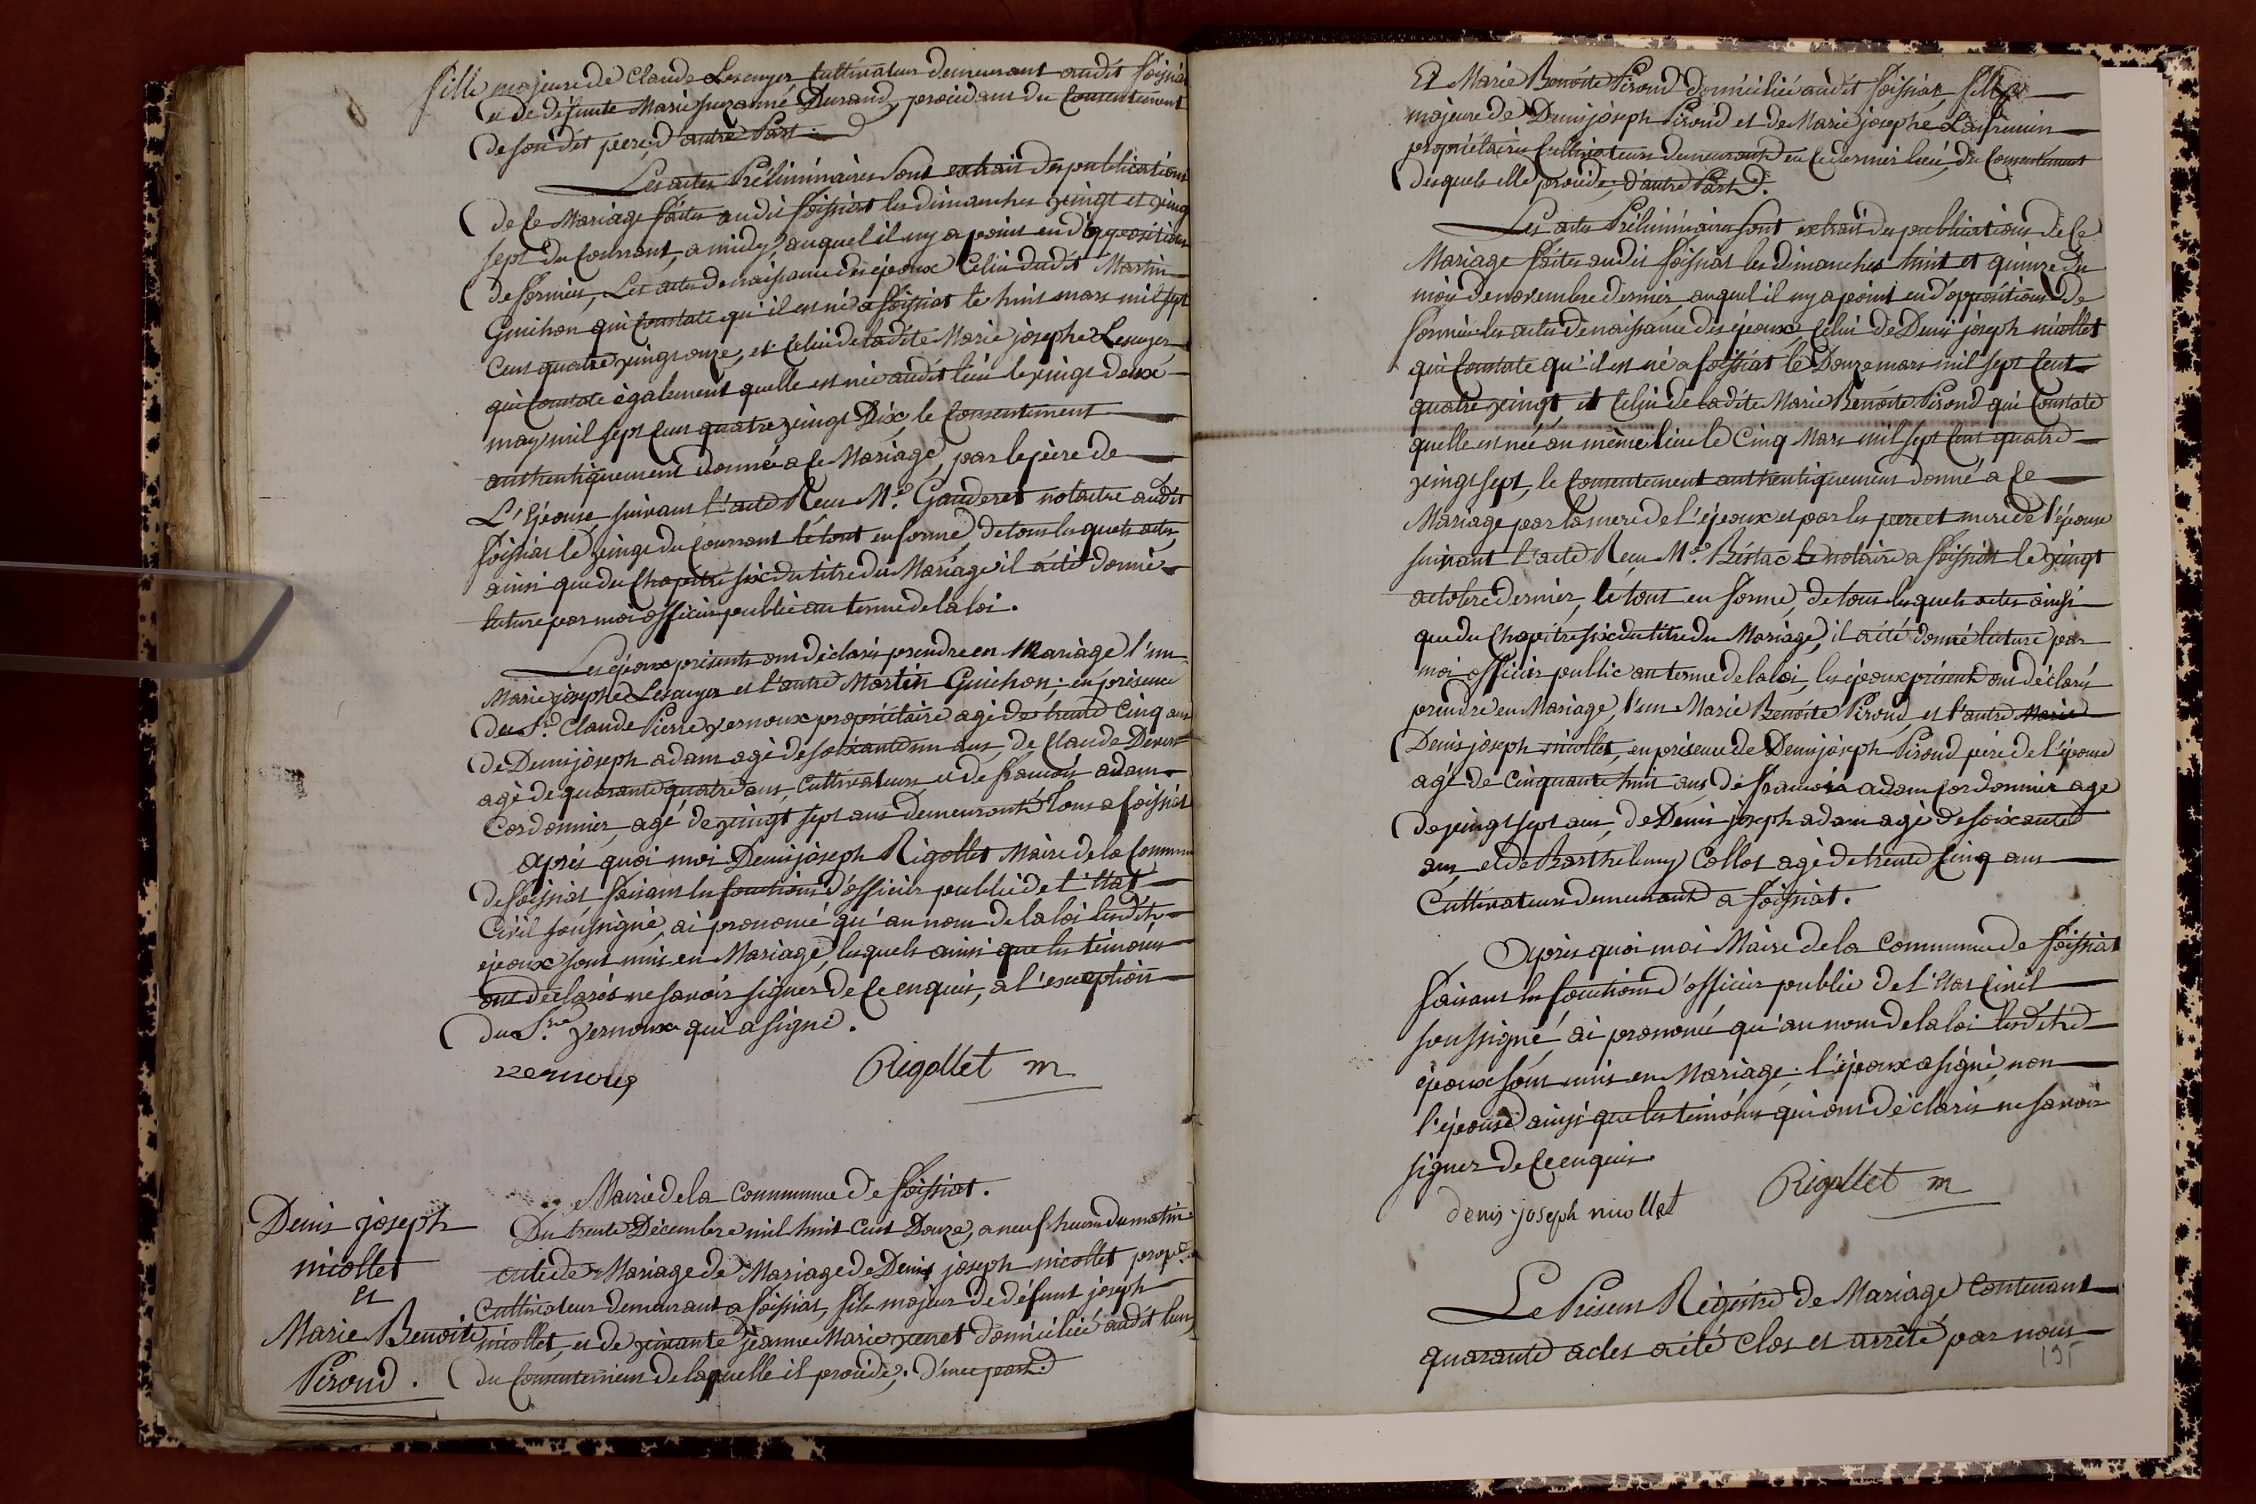 fille majeure de Claude Lescuyer Cultivateur demeurant audit foissiat
et de défunte Marie suzanne Durand, procedant du Consentement
de son dit pere, d'autre Part
Les actes Préliminaires sont extrait des publications
de ce Mariage faites audit foissiat les dimanches vingt et vingt
sept du Courrant, a midy, auquel il ny a point eu d'opposition
de formées, Les actes de naissance des époux Celui dudit Martin
Guichon qui Constate qu'il est né a foissiat le huit mars mil sept
Cent quatre vingt onze, et Celui de ladite Marie josephe Lescuyer
qui Constate également quelle est née audit lieu le vingt deux
may mil sept Cent quatre vingt Dix, le Consentement
authentiquement donné a Ce Mariage, par le pere de
L'Epouse, suivant l'acte Recu Me. Gauderet notaire audit
foissiat le vingt du Courrant le tout en forme de tous lesquels actes
ainsi que du Chapitre six du titre du Mariage il a été donné
lecture par moi officier public au terme de la loi.
Les époux présents ont déclarés prendre en Mariage l'un
Marie josephe Lescuyer et l'autre Martin Guichon; en présence
du Sr. Claude Pierre vernoux propriétaire agé de trente Cinq ans
de Denis joseph adam agé de soixante un ans, de Claude
agé de quarante quatre ans, Cultivateurs et de francois adam
Cordonnier, agé de vingt sept ans Demeurants Tous a foissiat
Après quoi moi Denis joseph Rigollet Maire de la Commune
de foissiat faisant les fonctions d'officier public de l'Etat
Civil soussigné, ai prononcé qu'au nom de la loi lesdits
époux sont unis en Mariage, lesquels ainsi que les témoins
ont déclarés ne savoir signer de ce enquis, a l'exception
du Sr. vernoux qui a signé.
vernoux Rigollet m
Mairie de la Commune de foissiat.
Denis joseph
nicollet
et
Marie Benoite
Piroud.
Du trente Décembre mil huit Cent Douze, a neuf heures du matin
acte de Mariage de Mariage de Denis joseph nicollet prop.re
Cultivateur demeurant a foissiat, fils majeur de défunt joseph
nicollet, et de vivante jeanne Marie domiciliée audit lieu,
du Consentement de laquelle il procéde,. D'une part.
Et Marie Benoite Piroud Domiciliée audit foissiat, fille
majeure de Denis joseph Piroud et de Marie josephe
propriétaire Cultivateurs demeurants en Ce dernier lieu, du Consentement
desquels elle procéde, d'autre Part.
Les actes Préliminaires sont extrait des publications de Ce
Mariage faites audit foissiat les dimanches huit et quinze du
mois de novembre dernier auquel il ny a point eu d'oppositions de
formée les actes de naissance des époux, Celui de Denis joseph nicollet
qui Constate qu'il est né a foissiat le Douze mars mil sept Cent
quatre vingt, et Celui de ladite Marie Benoite Piroud qui Constate
quelle est née au même lieu le Cinq Mars mil sept Cent quatre
vingt sept, le Consentement authentiquement donné a Ce
Mariage par la mere de l'époux et par les pere et mere de l'épouse
suivant l'acte Recu Me. notaire a foissiat le vingt
octobre dernier, le tout en forme, de tous lesquels actes ainsi
que du Chapitre six du titre du Mariage, il a été donné lecture par
moi officier public au terme de la loi, les époux présents ont déclarés
prendre en Mariage, l'un Marie Benoite Piroud et l'autre Marie
Denis joseph nicollet, en présence de Denis joseph Piroud pére de l'épouse
agé de Cinquante huit ans, de francois adam Cordonnier agé
de vingt sept ans, de Denis joseph adam agé de soixante
ans, et de Barthelemy Collot agé de trente Cinq ans
Cultivateurs demeurants a foissiat.
Après quoi moi Maire de la Commune de foissiat
faisant les fonctions d'officier public de l'Etat Civil
soussigné ai prononcé qu'au nom de la loi lesdits
époux sont unis en Mariage. l'époux a signé, non
l'épouse ainsi que les témoins qui ont déclarés ne savoir
signer de Ce enquis.
denis joseph nicollet Rigollet m
Le Présent Régistre de Mariage Contenant
quarante actes a été Clos et arrêté par nous